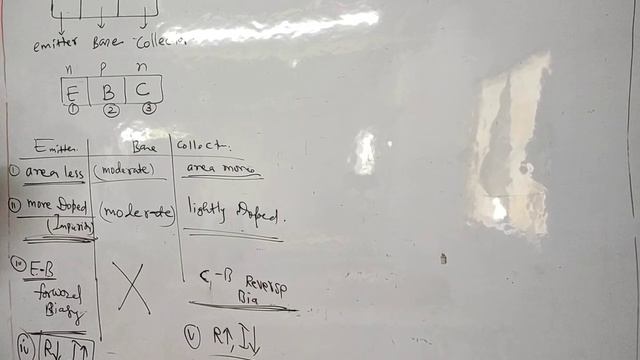 emitter Base Collector
n p n
E B C
① ② ③
Emitter Base Collect.
① area less (moderate) area more
② more Doped (moderate) lightly Doped.
(Impurity)
E-B C-B Reverse
forward Bia
Biasy
iv) R↓ I↑ v) R↑, I↓